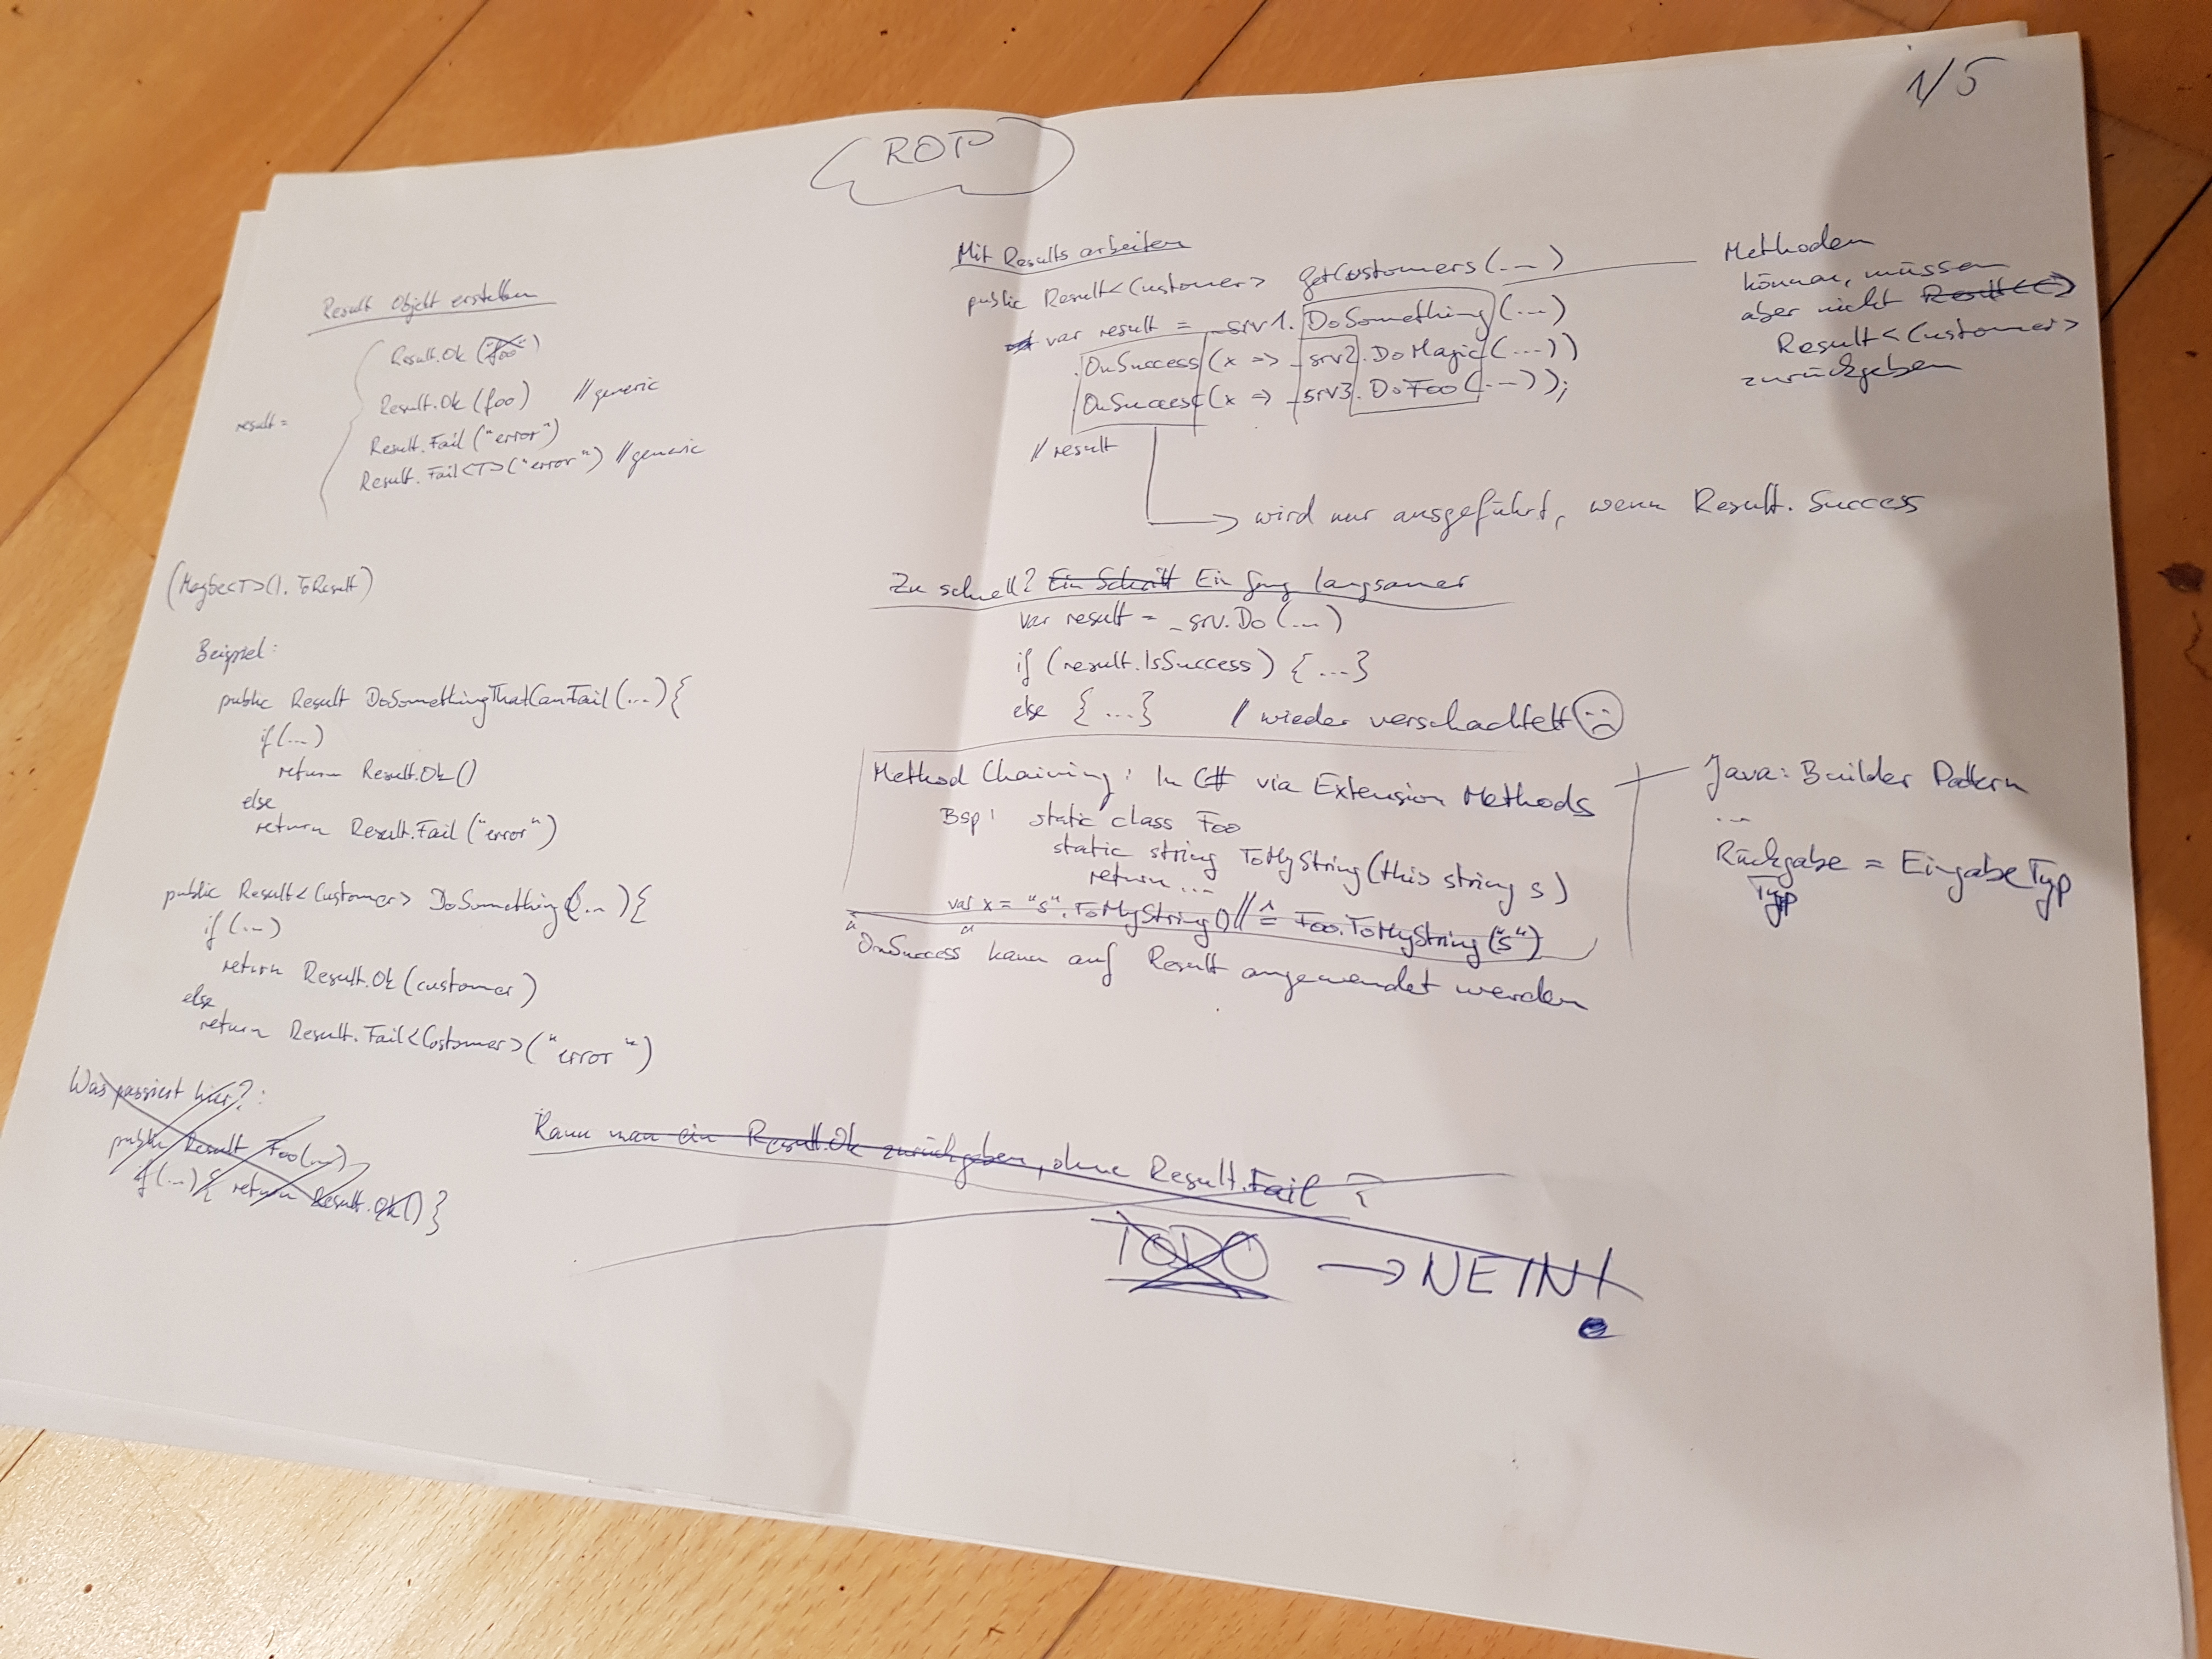 1/5
ROP
Result Objekt erstellen
result =
Result.Ok ("foo")
Result.Ok (foo) // generic
Result.Fail ("error")
Result.Fail<T>("error") // generic
(Maybe<T>().ToResult)
Beispiel:
public Result DoSomethingThatCanFail (...) {
if (...)
return Result.Ok ()
else
return Result.Fail ("error")
public Result<Customer> DoSomething (...) {
if (...)
return Result.Ok (customer)
else
return Result.Fail<Costumer>("error")
Was passiert hier?:
public Result Foo(...)
if (...) { return Result.Ok() }
Mit Results arbeiten
public Result<Customer> getCustomers (...)
var result = _srv1.DoSomething (...)
.OnSuccess (x => _srv2.DoMagic (...))
.OnSuccess (x => _srv3.DoFoo (...));
// result
wird nur ausgeführt, wenn Result.Success
Methoden
können, müssen
aber nicht Result<C>
Result<Customer>
zurückgeben
Zu schnell? Ein Schritt Ein Gang langsamer
var result = _srv.Do (...)
if (result.IsSuccess) { ... }
else { ... } // wieder verschachtelt
Method Chaining: In C# via Extension Methods
Bsp: static class Foo
static string ToMyString (this string s)
return ...
var x = "s".ToMyString () // ≙ Foo.ToMyString ("s")
"OnSuccess" kann auf Result angewendet werden
Java: Builder Pattern
...
Rückgabe = EingabeTyp
Typ
Kann man ein Result.Ok zurückgeben, ohne Result.Fail ?
TODO → NEIN!